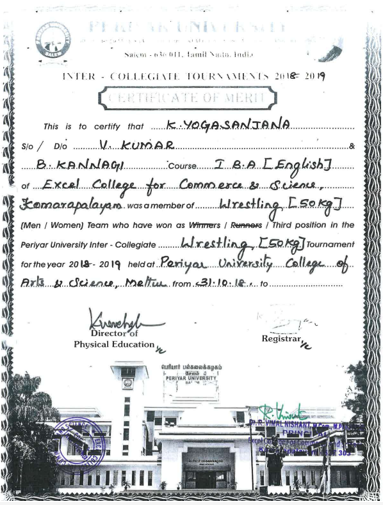 PERIYAR UNIVERSITY
Salem - 636 011, Tamil Nadu, India
INTER - COLLEGIATE TOURNAMENTS 2018- 2019
CERTIFICATE OF MERIT
This is to certify that K. YOGASANJANA
S/o / D/o V. KUMAR &
B. KANNAGI Course I B.A [English]
of Excel College for Commerce & Science,
Komarapalayam was a member of Wrestling, [50 kg]
(Men / Women) Team who have won as Winners / Runners / Third position in the
Periyar University Inter - Collegiate Wrestling, [50 kg] Tournament
for the year 2018 - 2019 held at Periyar University College of
Arts & Science, Mettur from 31.10.18 to
Director of
Physical Education
Registrar
பெரியார் பல்கலைக்கழகம்
சேலம்
PERIYAR UNIVERSITY